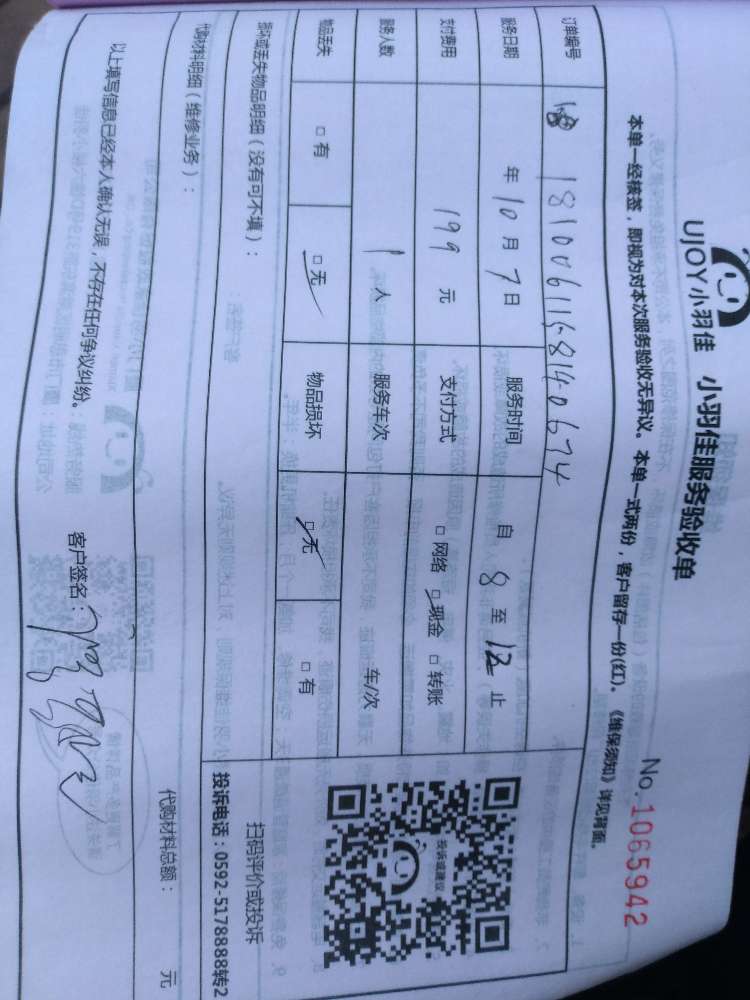 UJOY小羽佳 小羽佳服务验收单
No.1065942
本单一经核签，即视为对本次服务验收无异议。本单一式两份，客户留存一份(红)。《维保须知》详见背面。
订单编号 1810061158140674
服务日期 年 10 月 7 日 服务时间 自 8 至 12 止
支付费用 199 元 支付方式 □网络 □现金 □转账
服务人数 1 人 服务车次 车/次
物品丢失 □有 □无 物品损坏 □无 □有
投诉或建议
扫码评价或投诉
投诉电话：0592-5178888转2
损坏或丢失物品明细（没有可不填）：
代购材料明细（维修业务）：
代购材料总额： 元
以上填写信息已经本人确认无误，不存在任何争议纠纷。 客户签名：